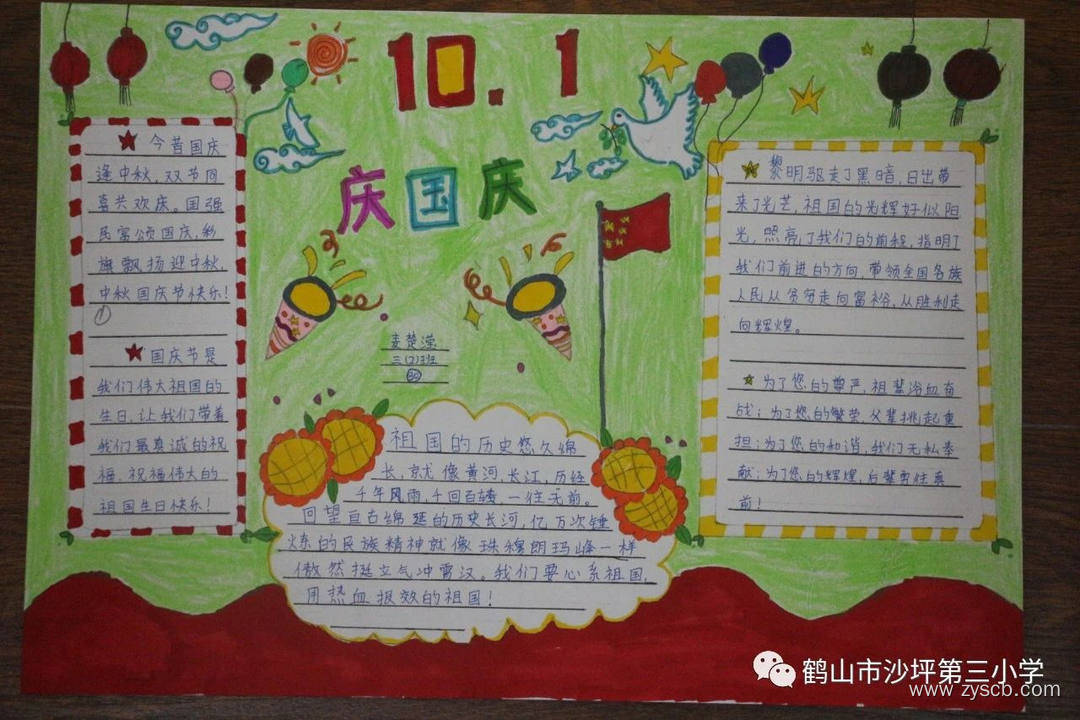 10.1
庆国庆
今昔国庆
逢中秋,双节同
喜共欢庆。国强
民富颂国庆,彩
旗飘扬迎中秋,
中秋国庆节快乐!
①
国庆节是
我们伟大祖国的
生日,让我们带着
我们最真诚的祝
福,祝福伟大的
祖国生日快乐!
麦楚滢
三(2)班
祖国的历史悠久绵
长,就像黄河,长江,历经
千年风雨,千回百转一往无前。
回望亘古绵延的历史长河,亿万次锤
炼的民族精神就像珠穆朗玛峰一样
傲然挺立气冲霄汉。我们要心系祖国,
用热血报效的祖国!
黎明驱走了黑暗,日出带
来了光芒,祖国的光辉好似阳
光,照亮了我们的前程,指明了
我们前进的方向,带领全国各族
人民从贫穷走向富裕,从胜利走
向辉煌。
为了您的尊严,祖辈浴血奋
战;为了您的繁荣,父辈挑起重
担;为了您的和谐,我们无私奉
献;为了您的辉煌,后辈勇往直
前!
鹤山市沙坪第三小学
www.zyscb.com